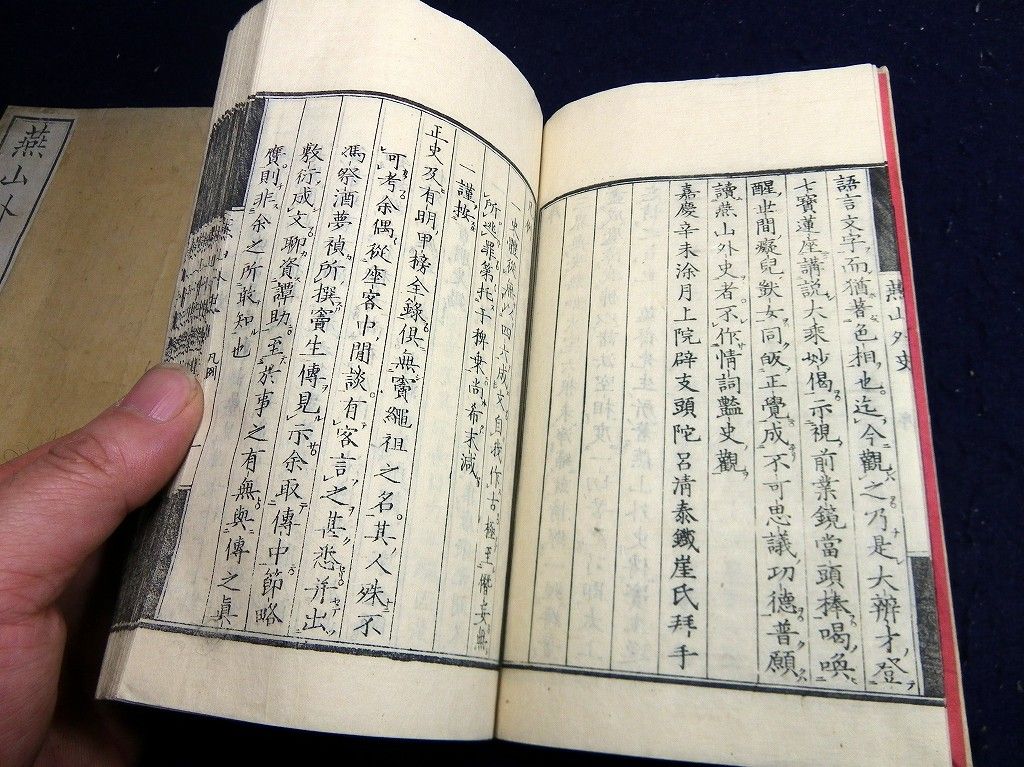 語言文字而猶著色相也迄今觀之乃是大辨才登
七寶蓮座講說大乘妙偈示視前業鏡當頭棒喝喚
醒世間癡兒獃女同皈正覺成不可思議功德普願
讀燕山外史者不作情詞豔史觀
嘉慶辛未涂月上院辟支頭陀呂清泰鐵崖氏拜手
燕山外史
序
凡例
一史體從無以四六成文自我作古極至僭妄無
所逃罪第托于稗乘尚希末減
一謹按
正史及有明甲榜全錄俱無竇繩祖之名其人殊不
可考余偶從座客中閒談有客言之甚悉并出
馮祭酒夢禎所撰竇生傳見示余取傳中節略
敷衍成文聊資譚助至於事之有無與傳之真
贗則非余之所敢知也
凡例
燕山外